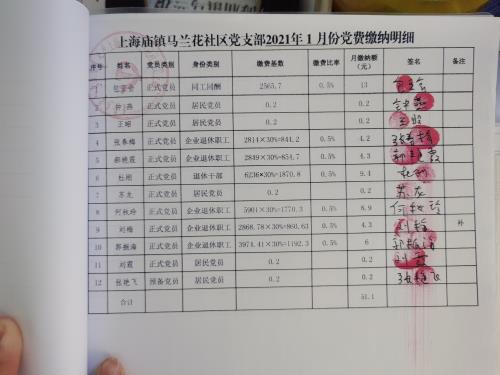 上海庙镇马兰花社区党支部2021年1月份党费缴纳明细
序号 姓名 党员类别 身份类别 缴费基数 缴费比率 月缴纳额（元） 签名 备注
1 正式党员 同工同酬 2565.7 0.5% 13
2 正式党员 居民党员 0.2 0.2
3 王昭 正式党员 居民党员 0.2 0.2 王昭
4 张春梅 正式党员 企业退休职工 2814×30%=844.2 0.5% 4.2 张春梅
5 郝艳霞 正式党员 企业退休职工 2849×30%=854.7 0.5% 4.3 郝艳霞
6 杜刚 正式党员 退休干部 6236×30%=1870.8 0.5% 9.4 杜刚
7 苏龙 正式党员 居民党员 0.2 0.2 苏龙
8 何秋玲 正式党员 企业退休职工 5901×30%=1770.3 0.5% 8.9 何秋玲
9 刘梅 正式党员 企业退休职工 2868.78×30%=860.63 0.5% 4.3 刘梅 补
10 郭振海 正式党员 企业退休职工 3974.41×30%=1192.3 0.5% 6
11 刘霞 正式党员 居民党员 0.2 0.2 刘霞
12 张艳飞 预备党员 居民党员 0.2 0.2 张艳飞
合计 51.1